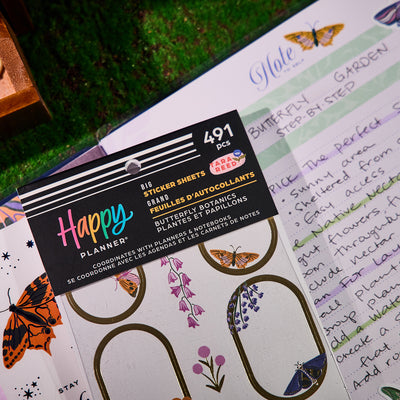 Note
TO SELF
BUTTERFLY GARDEN
STEP-BY-STEP
PICK The perfect S
sunny area
sheltered from
Easy access
Native necta
flowers
through
nectar
For La
plan
Add a Wate
create a
flat
Add ro
491
PCS
BIG
STICKER SHEETS
GRAND
FEUILLES D'AUTOCOLLANTS
BUTTERFLY BOTANICS
PLANTES ET PAPILLONS
TARA
REED
Happy
PLANNER®
COORDINATES WITH PLANNERS & NOTEBOOKS
SE COORDONNE AVEC LES AGENDAS ET LES CARNETS DE NOTES
STAY